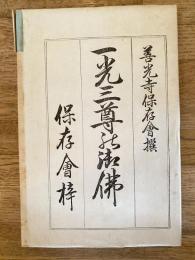 善光寺保存會撰
一光三尊の御佛
保存會梓